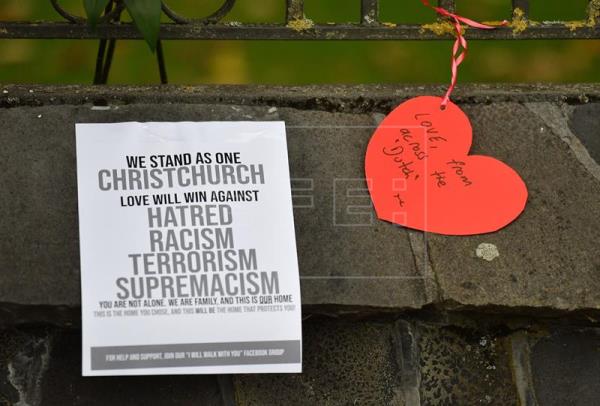 WE STAND AS ONE
CHRISTCHURCH
LOVE WILL WIN AGAINST
HATRED
RACISM
TERRORISM
SUPREMACISM
YOU ARE NOT ALONE. WE ARE FAMILY, AND THIS IS OUR HOME
THIS IS THE HOME YOU CHOSE, AND THIS WILL BE THE HOME THAT PROTECTS YOU!
FOR HELP AND SUPPORT, JOIN OUR "I WILL WALK WITH YOU" FACEBOOK GROUP
Love, from
across the
"Dutch"
EFE: